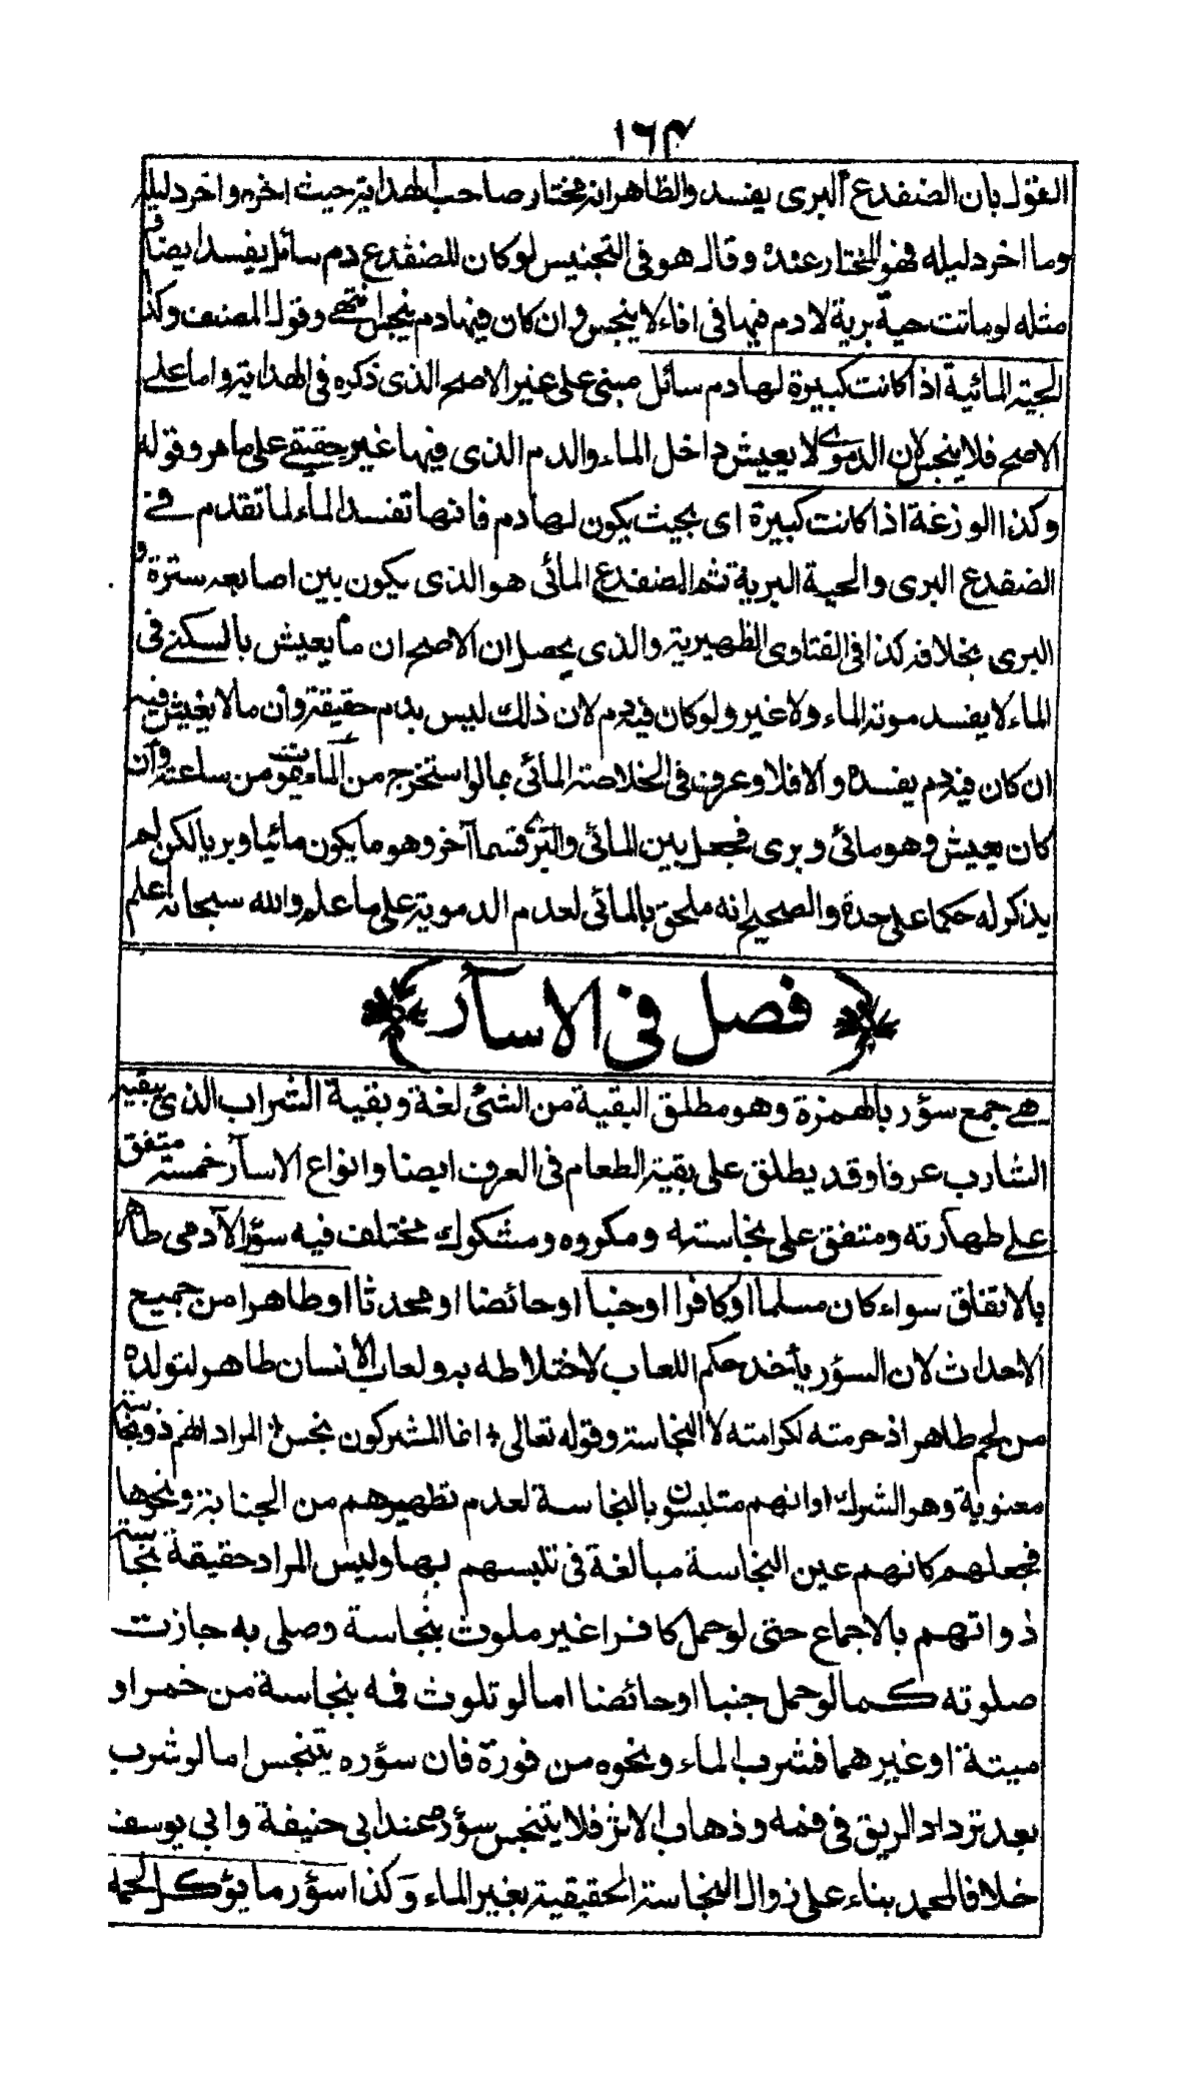 ١٦٤
القول بان الضفدع البرى يفسد والظاهر انه مختار صاحب الهداية حيث اخره واخر دليله
وما اخر دليله فهو المختار عنده وقال هو فى التجنيس لو كان للضفدع دم سائل يفسد ايضا و
مثله لو ماتت حية برية لا دم فيها فى اناء لا ينجس وان كان فيها دم ينجس انتهى وقول المصنف وكذا
الحية المائية اذا كانت كبيرة لها دم سائل مبنى على غير الاصح الذى ذكره فى الهداية واما على
الاصح فلا ينجس لان الدموى لا يعيش داخل الماء والدم الذى فيها غير حقيقى على ما مر وقوله
وكذا الوزغة اذا كانت كبيرة اى بحيث يكون لها دم فانها تفسد الماء لما تقدم فى
الضفدع البرى والحية البرية ثم الضفدع المائى هو الذى يكون بين اصابعه سترة و
البرى بخلافه كذا فى الفتاوى الظهيرية والذى يحصل ان الاصح ان ما يعيش بالسكنى فى
الماء لا يفسد موته الماء ولا غيره ولو كان فيه دم لان ذلك ليس بدم حقيقة وان ما لا يعيش فيه
ان كان فيه دم يفسده والا فلا وعرف فى الخلاصة المائى بما لو استخرج من الماء يموت من ساعته وان
كان يعيش فهو مائى وبرى فجعل بين المائى والبرى قسما آخر وهو ما يكون مائيا وبريا لكن لم
يذكر له حكما على حدة والصحيح انه ملحق بالمائى لعدم الدموية على ما علم والله سبحانه اعلم
فصل فى الاسآر
هى جمع سؤر بالهمزة وهو مطلق البقية من الشئ لغة وبقية الشراب الذى يبقيه
الشارب عرفا وقد يطلق على بقية الطعام فى العرف ايضا وانواع الاسآر خمسة متفق
على طهارته ومتفق على نجاسته ومكروه ومشكوك مختلف فيه سؤر الآدمى طاهر
بالاتفاق سواء كان مسلما او كافرا او جنبا او حائضا او محدثا او طاهرا من جميع
الاحداث لان السؤر يأخذ حكم اللعاب لاختلاطه به ولعاب الانسان طاهر لتولده
من لحم طاهر اذ حرمته لكرامته لا لنجاسته وقوله تعالى انما المشركون نجس المراد انهم ذو نجاسة
معنوية وهو الشرك او انهم متلبسون بالنجاسة لعدم تطهيرهم من الجنابة ونحوها
فجعلهم كانهم عين النجاسة مبالغة فى تلبسهم بها وليس المراد حقيقة نجاسة
ذواتهم بالاجماع حتى لو حمل كافرا غير ملوث بنجاسة وصلى به جازت
صلوته كما لو حمل جنبا او حائضا اما لو تلوث فمه بنجاسة من خمر او
ميتة او غيرهما فشرب الماء ونحوه من فورة فان سؤره يتنجس اما لو شرب
بعد تزداد الريق فى فمه وذهاب الاثر فلا يتنجس سؤره عند ابى حنيفة وابي يوسف
خلافا لمحمد بناء على زوال النجاسة الحقيقية بغير الماء وكذا سؤر ما يؤكل لحمه